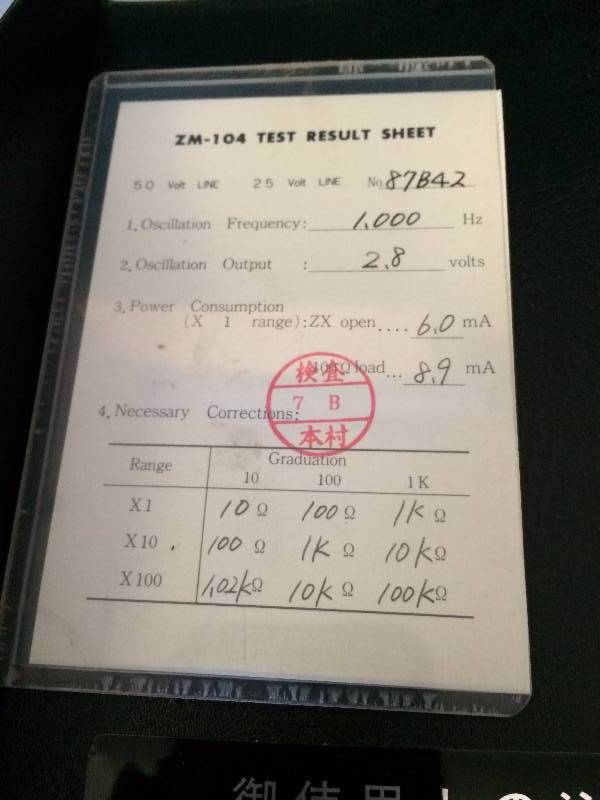 ZM-104 TEST RESULT SHEET
50 Volt LINE 25 Volt LINE No. 87B42
1. Oscillation Frequency: 1,000 Hz
2. Oscillation Output : 2.8 volts
3. Power Consumption
(X 1 range): ZX open.... 6.0 mA
100Ω load... 8.9 mA
検査
7 B
本村
4. Necessary Corrections:
Range Graduation
10 100 1K
X1 10 Ω 100 Ω 1K Ω
X10 100 Ω 1K Ω 10K Ω
X100 1.02K Ω 10K Ω 100K Ω
御使用上の注